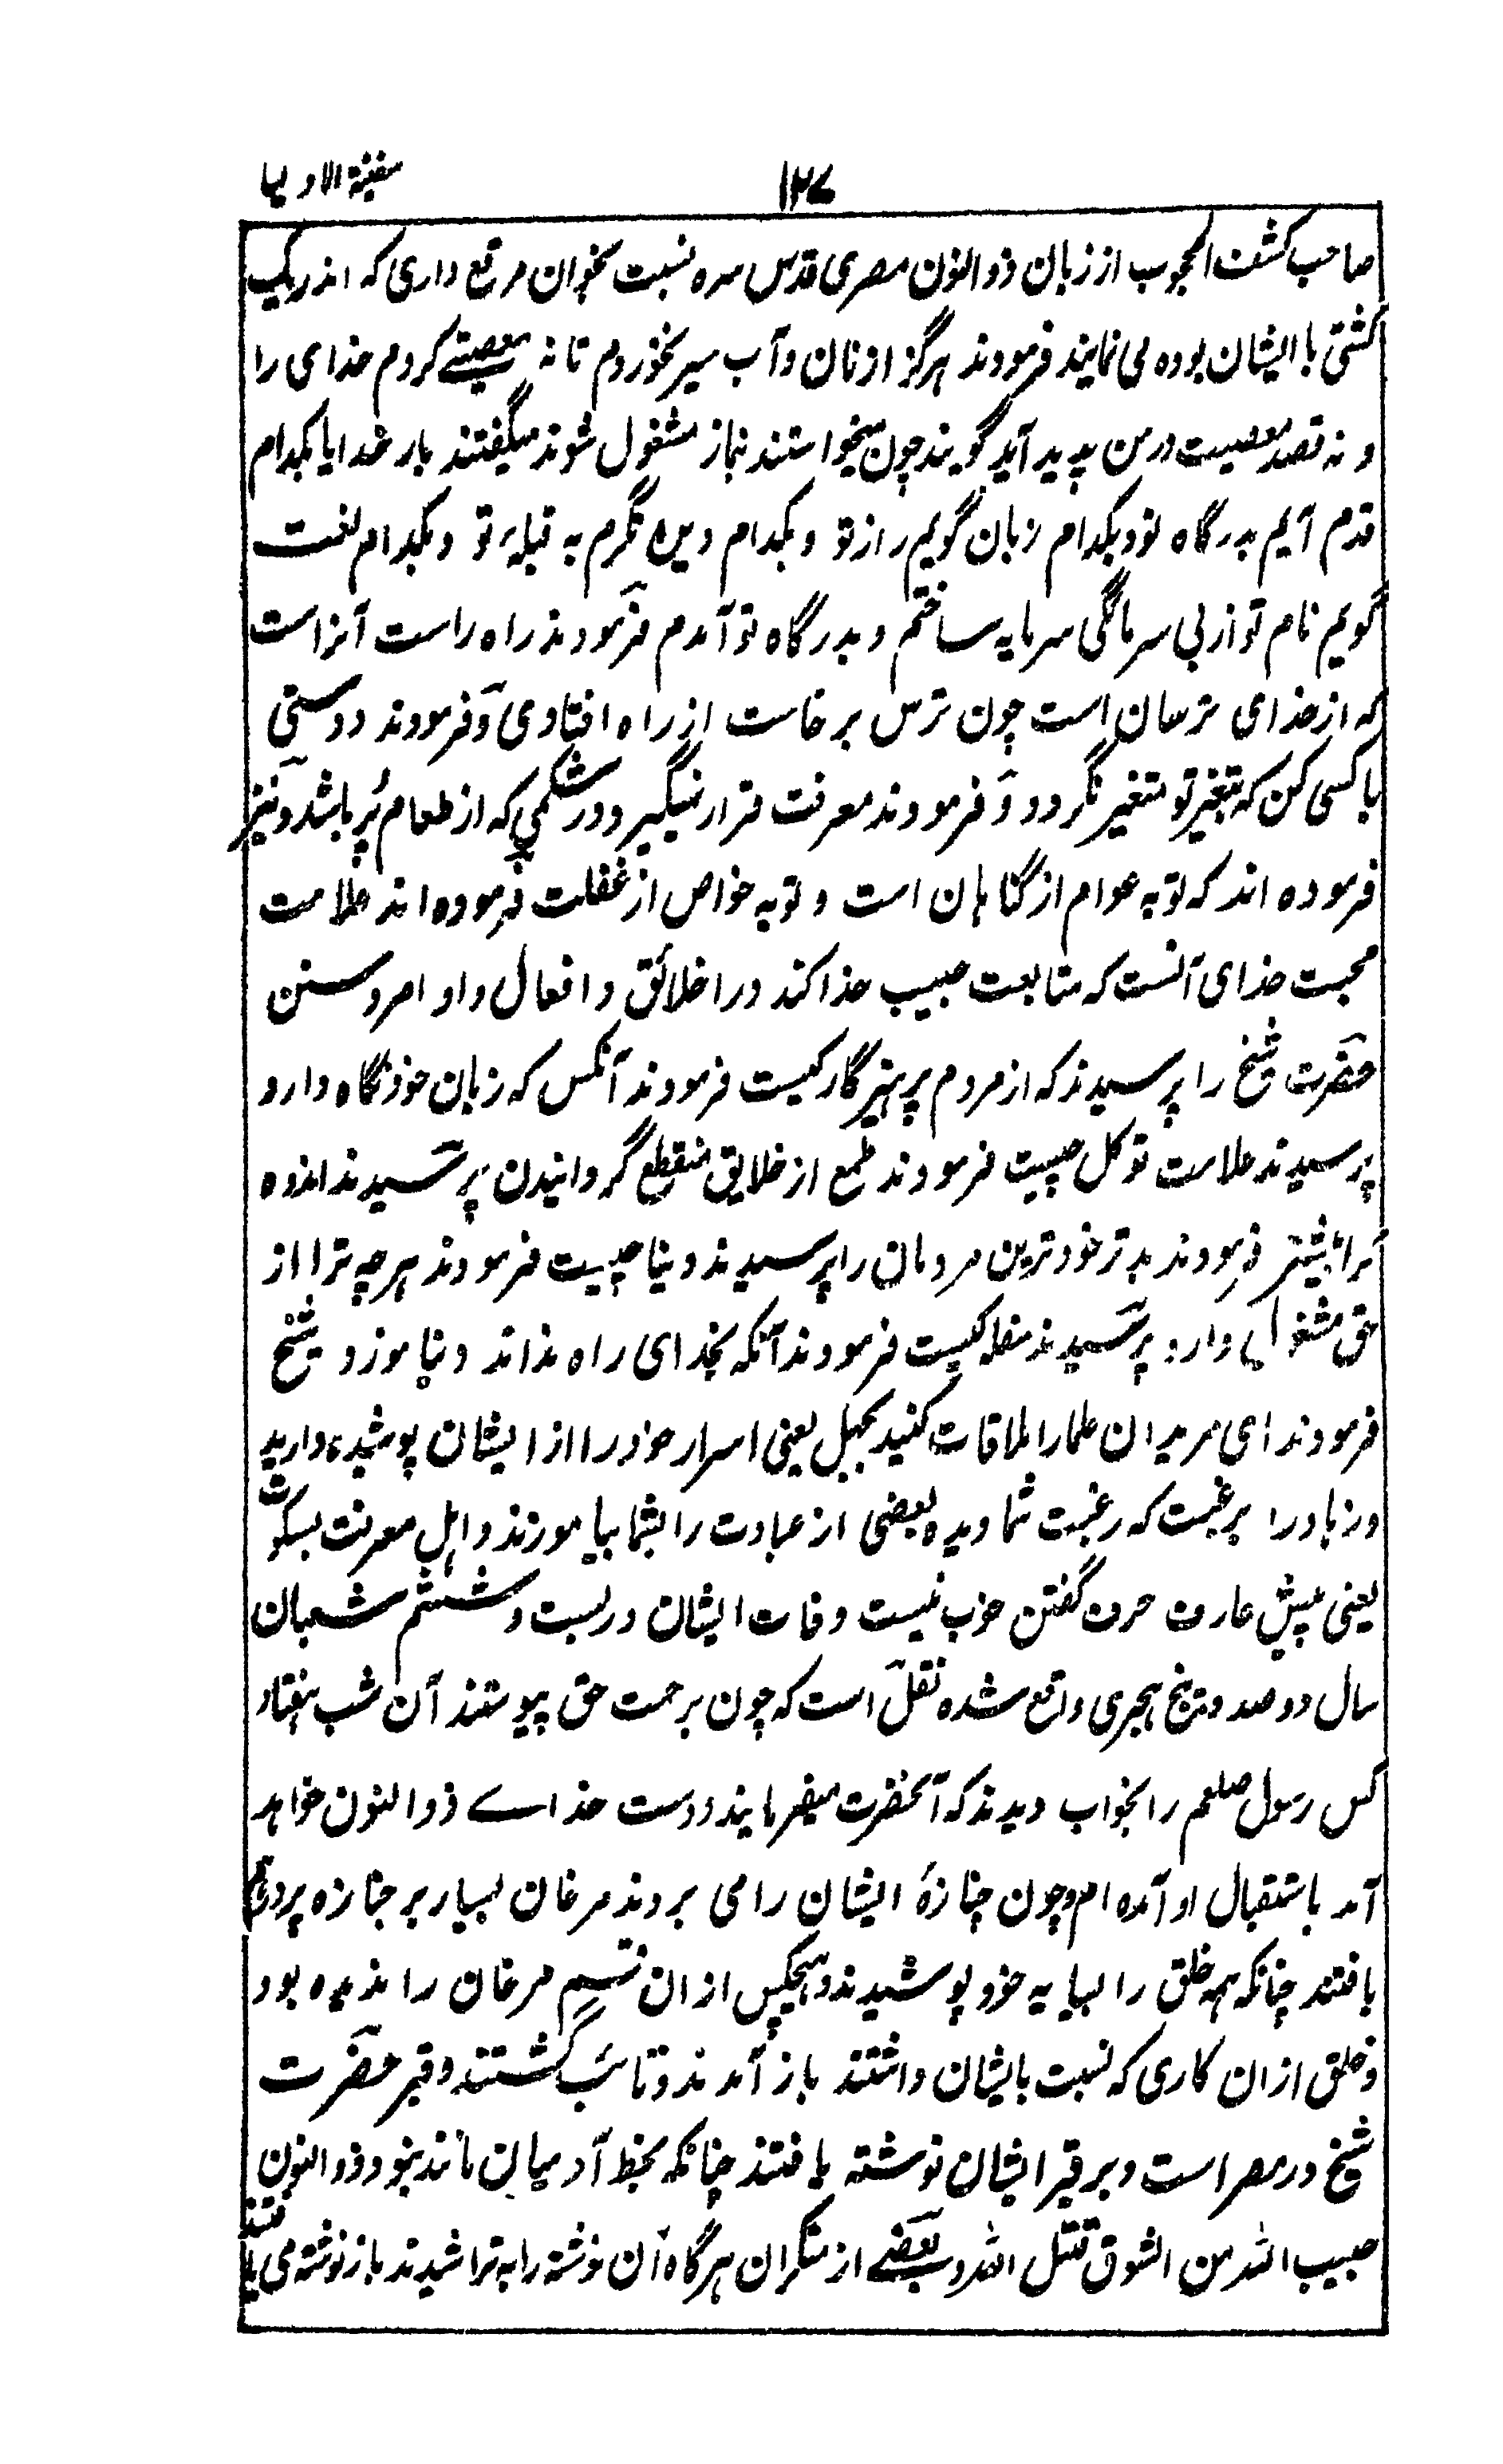 سفینة الاولیا
۱۲۷
صاحب کشف المحجوب از زبان ذوالنون مصری قدس سره نسبت بخوان مرقع داری که اندر یک
کشتی با ایشان بوده می نمایند فرمودند هرگز از نان و آب سیر نخوردم تا نه معصیتے کردم خدای را
و نه قصد معصیت در من پدید آید گویند چون میخواستند نماز مشغول شوند میگفتند بار خدایا بکدام
قدم آیم بدرگاه تو و بکدام زبان گویم راز تو و بکدام دیده نگرم به قبلهٔ تو و بکدام لغت
گویم نام تو از بی سرمایگی سرمایه ساختم و بدرگاه تو آمدم فرمودند راه راست آنراست
که از خدای ترسان است چون ترس برخاست از راه افتادی و فرمودند دوستی
با کسی کن که بتغیر تو متغیر نگردد و فرمودند معرفت قرار نمیگیرد در شکمی که از طعام پُر باشد و نیز
فرموده اند که توبه عوام از گناهان است و توبه خواص از غفلت فرموده اند علامت
محبت خدای آنست که متابعت حبیب خدا کند در اخلائق و افعال و اوامر و سنن
حضرت شیخ را پرسیدند که از مردم پرهیزگار کیست فرمودند آنکس که زبان خود نگاه دارد
پرسیدند علامت توکل چیست فرمودند طمع از خلایق منقطع گردانیدن پرسیدند اندوه
کرا بیشتر فرمودند بدترخو ترین مردمان را پرسیدند دنیا چیست فرمودند هرچه ترا از
حق مشغول دارد پرسیدند سفله کیست فرمودند آنکه بخدای راه نداند و نیاموزد شیخ
فرمودند ای مریدان علما را ملاقات کنید بجهل یعنی اسرار خود را از ایشان پوشیده دارید
و زهاد را برغبت که رغبت شما دیده بعضی از عبادت را بشما بیاموزند و اهل معرفت بسکوت
یعنی پیش عارف حرف گفتن خوب نیست وفات ایشان در بست و ششم شعبان
سال دو صد و پنج هجری واقع شده نقل است که چون برحمت حق پیوستند آن شب هفتاد
کس رسول صلعم را بخواب دیدند که آنحضرت میفرمایند دوست خداے ذوالنون خواهد
آمد باستقبال او آمده ام و چون جنازهٔ ایشان را می بردند مرغان بسیار بر جنازه پر در پر
بافتند چنانکه همه خلق را بسایه خود پوشیدند و هیچکس از ان قسم مرغان را ندیده بود
و خلق از ان کاری که نسبت بایشان داشتند باز آمدند و تائب گشتند و قبر حضرت
شیخ در مصر است و بر قبر ایشان نوشته یافتند چنانکه بخط آدمیان مانند نبود ذوالنون
حبیب الله من الشوق قتیل الله و بعضے از منکران هرگاه آن نوشته را به تراشیدند باز نوشته می یافتند